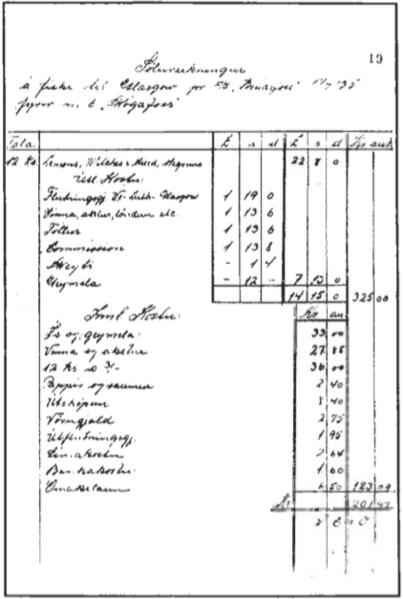 19
Sölureikningur
á fiski til Glasgow pr S/S "Brúarfoss"
fyrir m. b. "Skógafoss"
Tala £ s d £ s d Kr aur.
12 Ks. Lemons, Witches & Mixed, Megrims 22 8 0
Útl. Kostn:
Flutningsgj. Leith Glasgow 1 19 0
Vinna, akstur, löndun etc. 1 13 6
Tollur 1 13 6
Commission 1 13 8
Skeyti - 1 4
Geymsla - 12 - 7 13 0
14 15 0 325 00
Innl. Kostn: Kr au
Ís og geymsla 33 00
Vinna og akstur 27 85
12 ks á 3/- 36 00
Pappír og saumur 2 40
Útskipun 8 40
Vörugjald 2 75
Útflutningsgj. 1 95
2 64
1 60
Ómakslaun 6 50 123 09
Kr 201